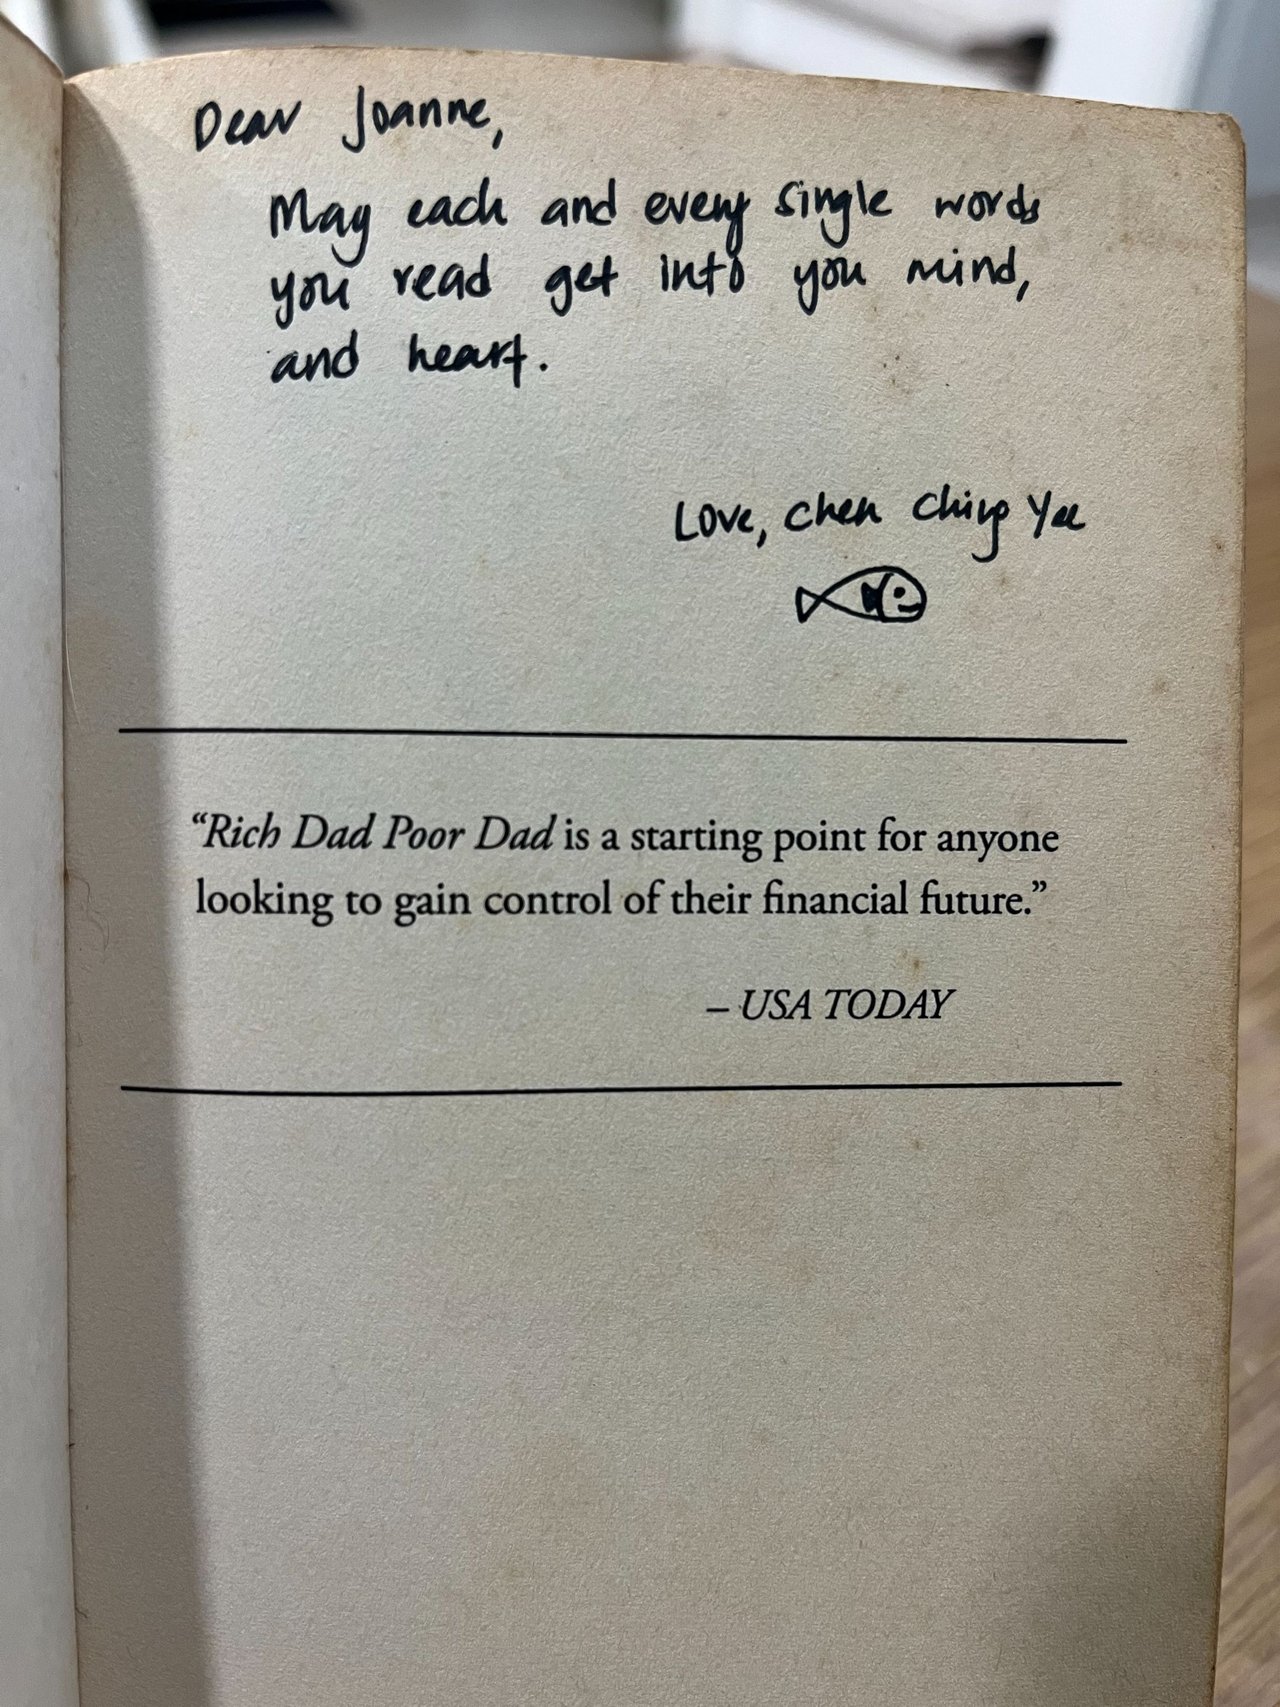 Dear Joanne,
May each and every single words
you read get into you mind,
and heart.
Love, Chen Ching Yee
“Rich Dad Poor Dad is a starting point for anyone
looking to gain control of their financial future.”
– USA TODAY